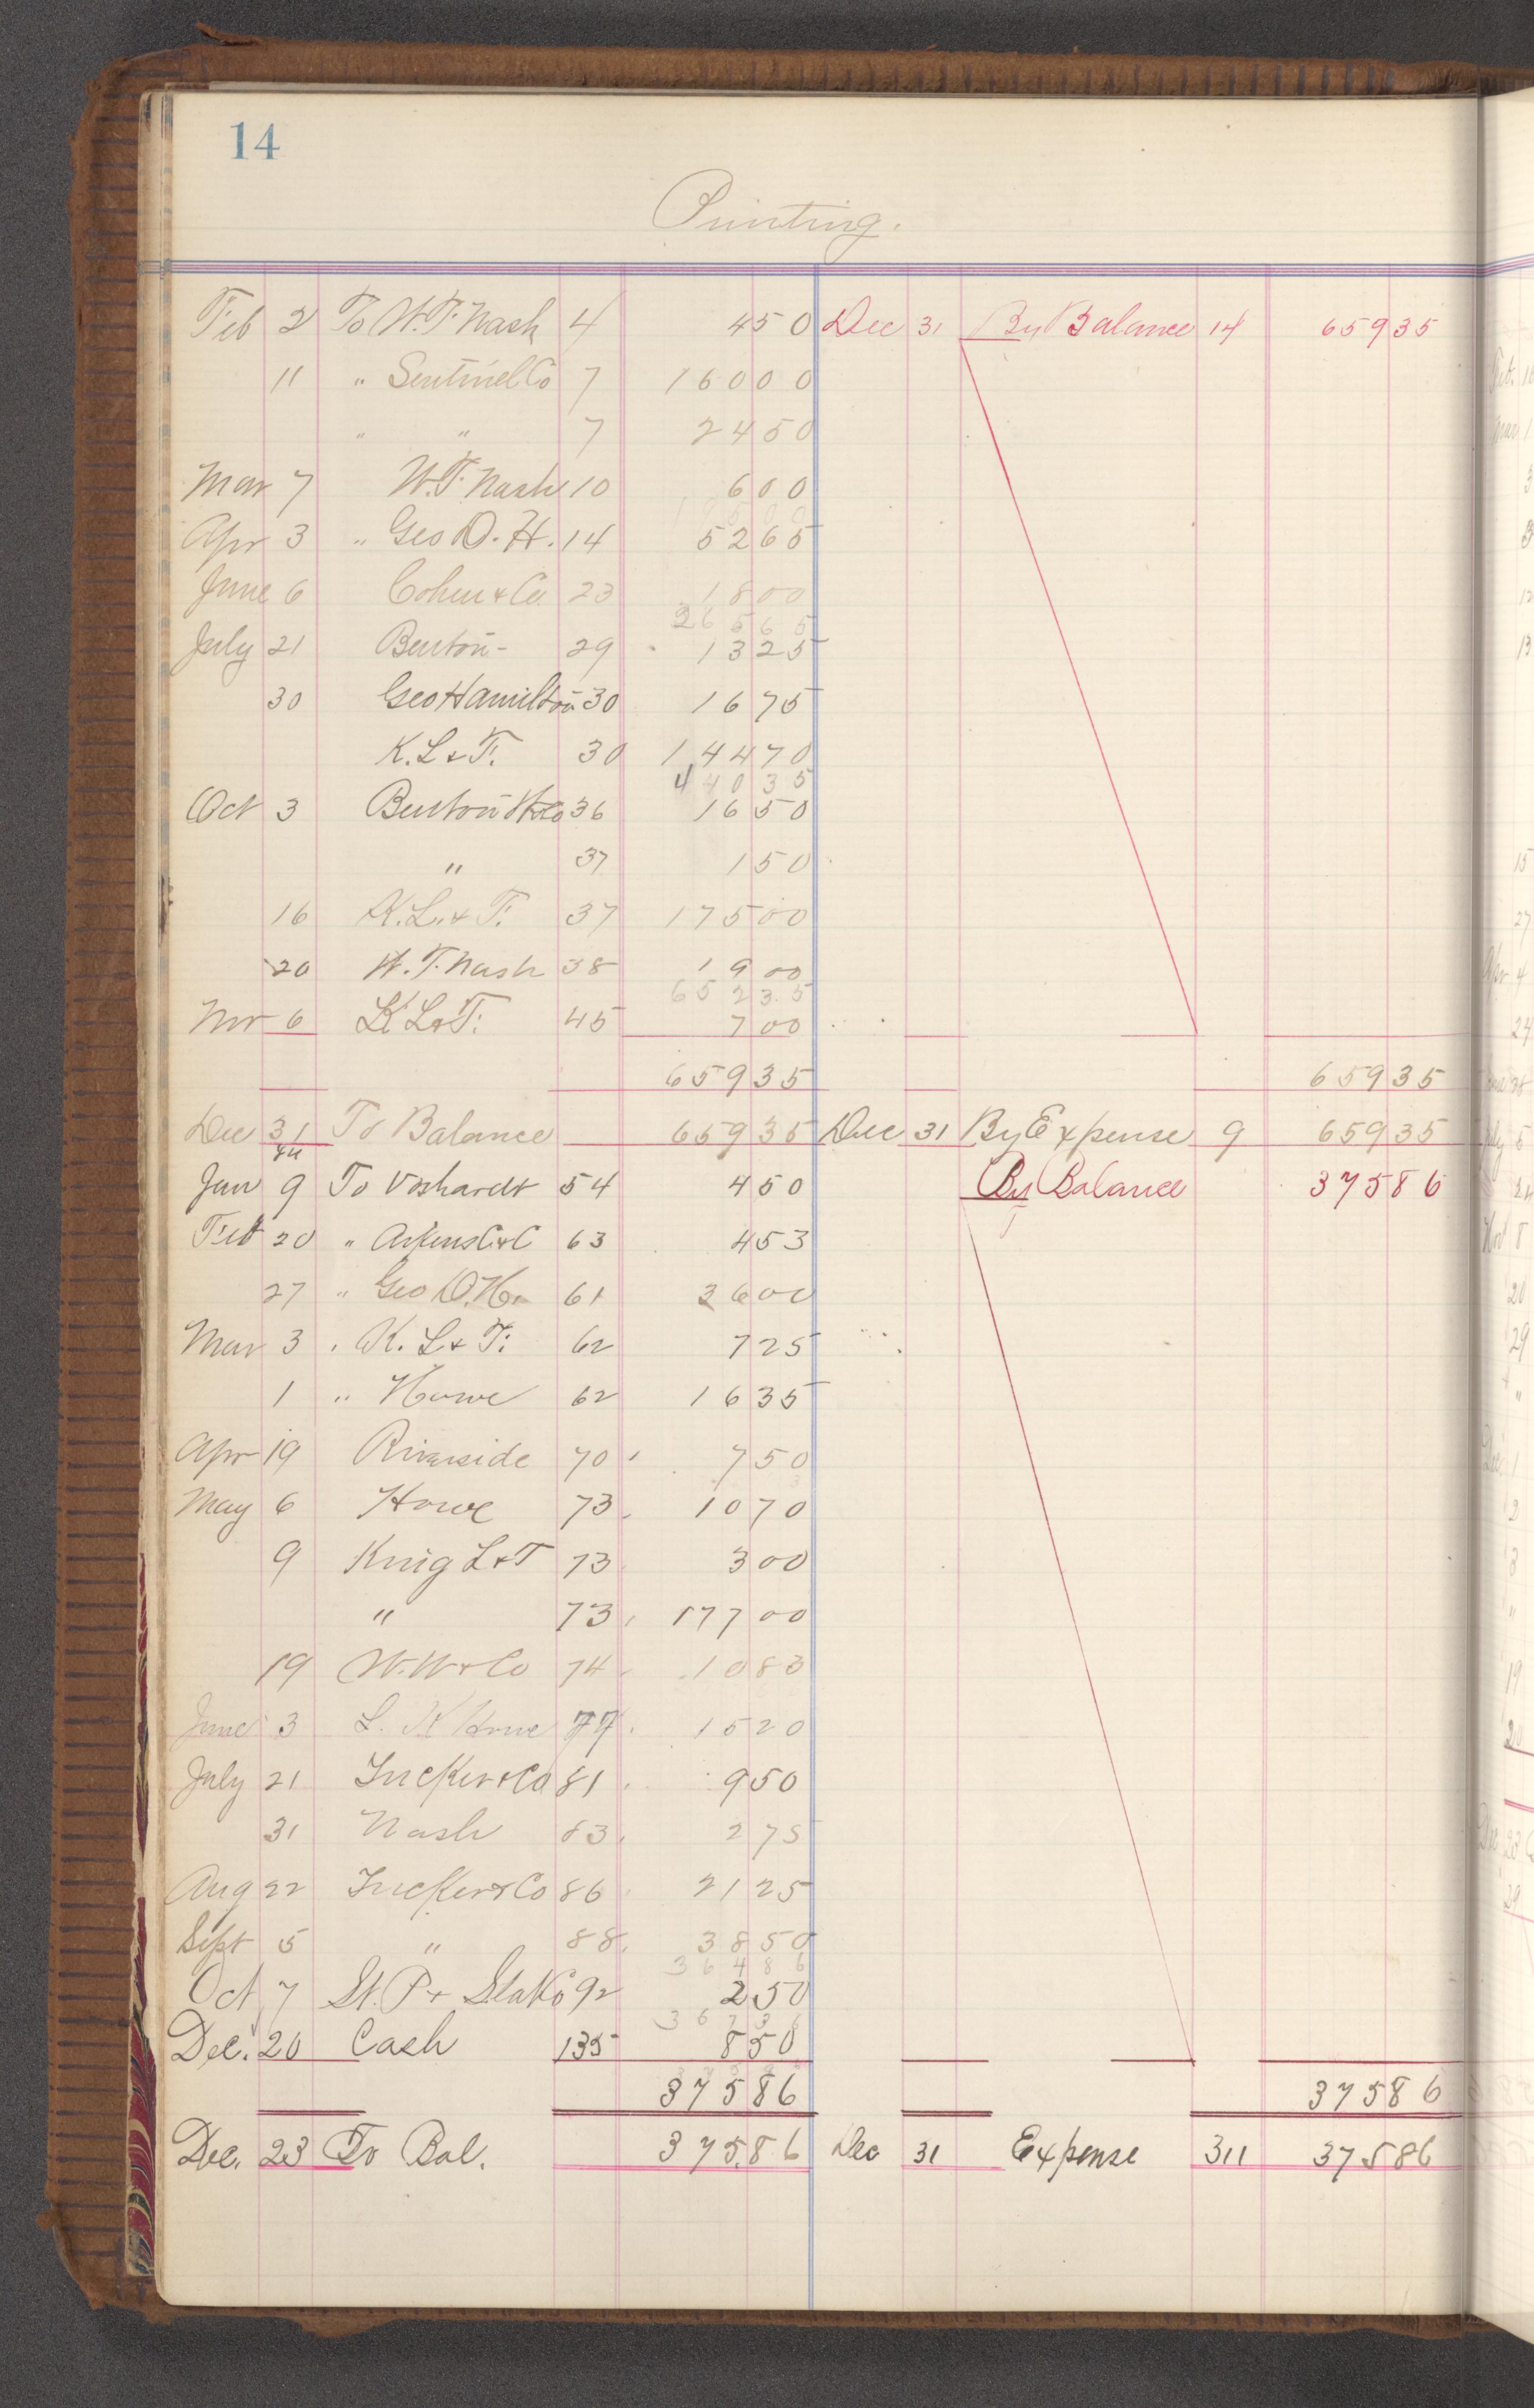 14
Printing.
Feb 2 To W. T. Nash 4 4 50 Dec 31 By Balance 14 659 35
11 " Sentinel Co 7 160 00
" " 7 24 50
Mar 7 W. T. Nash 10 6 00
Apr 3 " Geo D. H. 14 52 65
June 6 Cohen & Co. 23 18 00
265 65
July 21 Benton - 29 13 25
30 Geo Hamilton 30 16 75
K. L & T. 30 144 70
440 35
Oct 3 Benton 36 16 50
" 37 1 50
16 K. L. & T. 37 175 00
20 W. T. Nash 38 19 00
652 35
Nov 6 K L & T. 45 7 00
659 35 659 35
Dec 31 To Balance 659 35 Dec 31 By Expense 9 659 35
Jan 9 To Voshardt 54 4 50 By Balance 375 86
Feb 20 " C & C 63 4 53
27 " Geo D. H. 61 36 00
Mar 3 " K. L & T. 62 7 25
1 " Howe 62 16 35
Apr 19 Riverside 70 7 50
May 6 Howe 73 10 70
9 King L & T 73 3 00
" 73 177 00
19 W. W & Co 74 10 83
June 3 L. K Howe 77 15 20
July 21 Tucker & Co 81 9 50
31 Nash 83 2 75
Aug 22 Tucker & Co 86 21 25
Sept 5 " 88 38 50
364 86
Oct 7 St. P & Sta Co 92 2 50
367 36
Dec. 20 Cash 135 8 50
375 86 375 86
Dec. 23 To Bal. 375.86 Dec 31 Expense 311 375 86